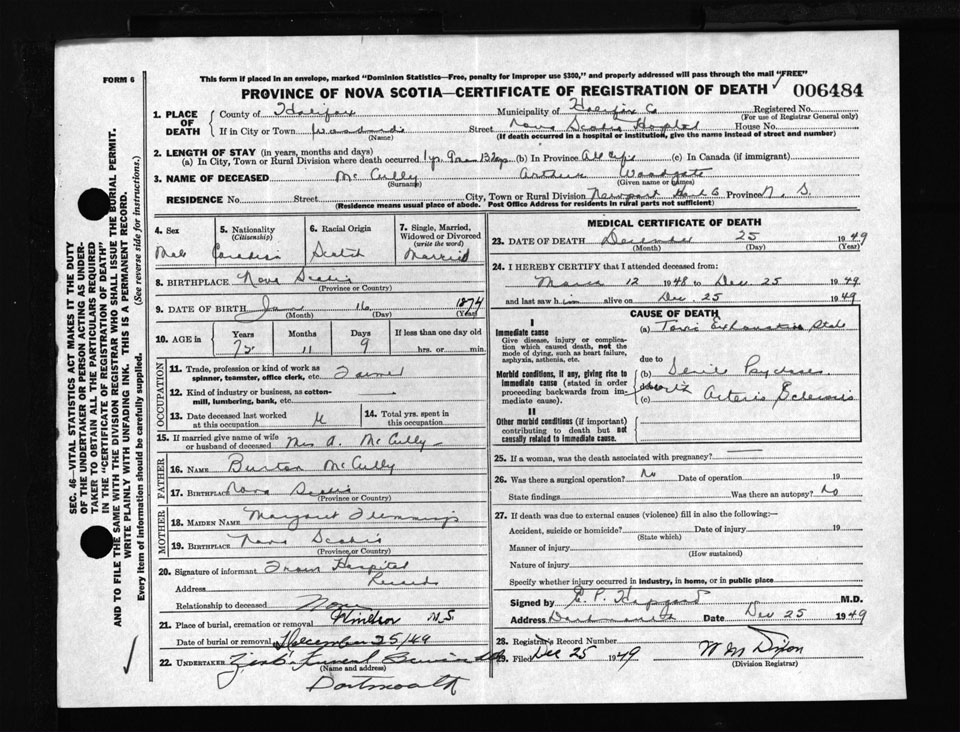 FORM 6
This form if placed in an envelope, marked "Dominion Statistics—Free, penalty for improper use $300," and properly addressed will pass through the mail "FREE"
PROVINCE OF NOVA SCOTIA—CERTIFICATE OF REGISTRATION OF DEATH ✓ 006484
1. PLACE OF DEATH County of Halifax Municipality of Halifax Co Registered No.
(For use of Registrar General only)
If in City or Town Street Nova Scotia Hospital House No.
(Name) (If death occurred in a hospital or institution, give the name instead of street and number)
2. LENGTH OF STAY (in years, months and days)
(a) In City, Town or Rural Division where death occurred (b) In Province All life (c) In Canada (if immigrant)
3. NAME OF DECEASED McCully Arthur Woodgate
(Surname) (Given name or names)
RESIDENCE No. Street City, Town or Rural Division Newport Province N. S.
(Residence means usual place of abode. Post Office Address for residents in rural parts not sufficient)
4. Sex Male
5. Nationality (Citizenship) Canadian
6. Racial Origin Scotch
7. Single, Married, Widowed or Divorced (write the word) Married
8. BIRTHPLACE Nova Scotia
(Province or Country)
9. DATE OF BIRTH 16 1874
(Month) (Day) (Year)
10. AGE in Years 75 Months 11 Days 9 If less than one day old
hrs. or min.
OCCUPATION
11. Trade, profession or kind of work as spinner, teamster, office clerk, etc. Farmer
12. Kind of industry or business, as cotton-mill, lumbering, bank, etc. —
13. Date deceased last worked at this occupation
14. Total yrs. spent in this occupation
15. If married give name of wife or husband of deceased Mrs A. McCully
FATHER
16. NAME Burton McCully
17. BIRTHPLACE Nova Scotia
(Province or Country)
MOTHER
18. MAIDEN NAME Margaret Flemming
19. BIRTHPLACE Nova Scotia
(Province or Country)
20. Signature of informant From Hospital
Records
Address
Relationship to deceased None
21. Place of burial, cremation or removal Windsor N S
Date of burial or removal December 25/49
22. UNDERTAKER Zink's Funeral
(Name and address)
Dartmouth
MEDICAL CERTIFICATE OF DEATH
23. DATE OF DEATH December 25 1949
(Month) (Day) (Year)
24. I HEREBY CERTIFY that I attended deceased from:
March 12 1948 to Dec. 25 1949
and last saw him alive on Dec. 25 1949
CAUSE OF DEATH
I
Immediate cause
Give disease, injury or complication which caused death, not the mode of dying, such as heart failure, asphyxia, asthenia, etc.
(a) Toxic Exhaustive State
due to
Morbid conditions, if any, giving rise to immediate cause (stated in order proceeding backwards from immediate cause).
(b) Senile Psychosis
(c) Arterio Sclerosis
II
Other morbid conditions (if important) contributing to death but not causally related to immediate cause.
25. If a woman, was the death associated with pregnancy? —
26. Was there a surgical operation? No Date of operation 19
State findings Was there an autopsy? No
27. If death was due to external causes (violence) fill in also the following:—
Accident, suicide or homicide? Date of injury 19
(State which)
Manner of injury
(How sustained)
Nature of injury
Specify whether injury occurred in industry, in home, or in public place
Signed by M.D.
Address Dartmouth Date Dec 25 1949
28. Registrar's Record Number
29. Filed Dec 25 1949 W M Dixon
(Division Registrar)
SEC. 46—VITAL STATISTICS ACT MAKES IT THE DUTY
OF THE UNDERTAKER OR PERSON ACTING AS UNDERTAKER
TO OBTAIN ALL THE PARTICULARS REQUIRED
IN THE "CERTIFICATE OF REGISTRATION OF DEATH"
AND TO FILE THE SAME WITH THE DIVISION REGISTRAR WHO SHALL ISSUE THE BURIAL PERMIT.
WRITE PLAINLY WITH UNFADING INK. THIS IS A PERMANENT RECORD.
Every item of information should be carefully supplied. (See reverse side for instructions.)